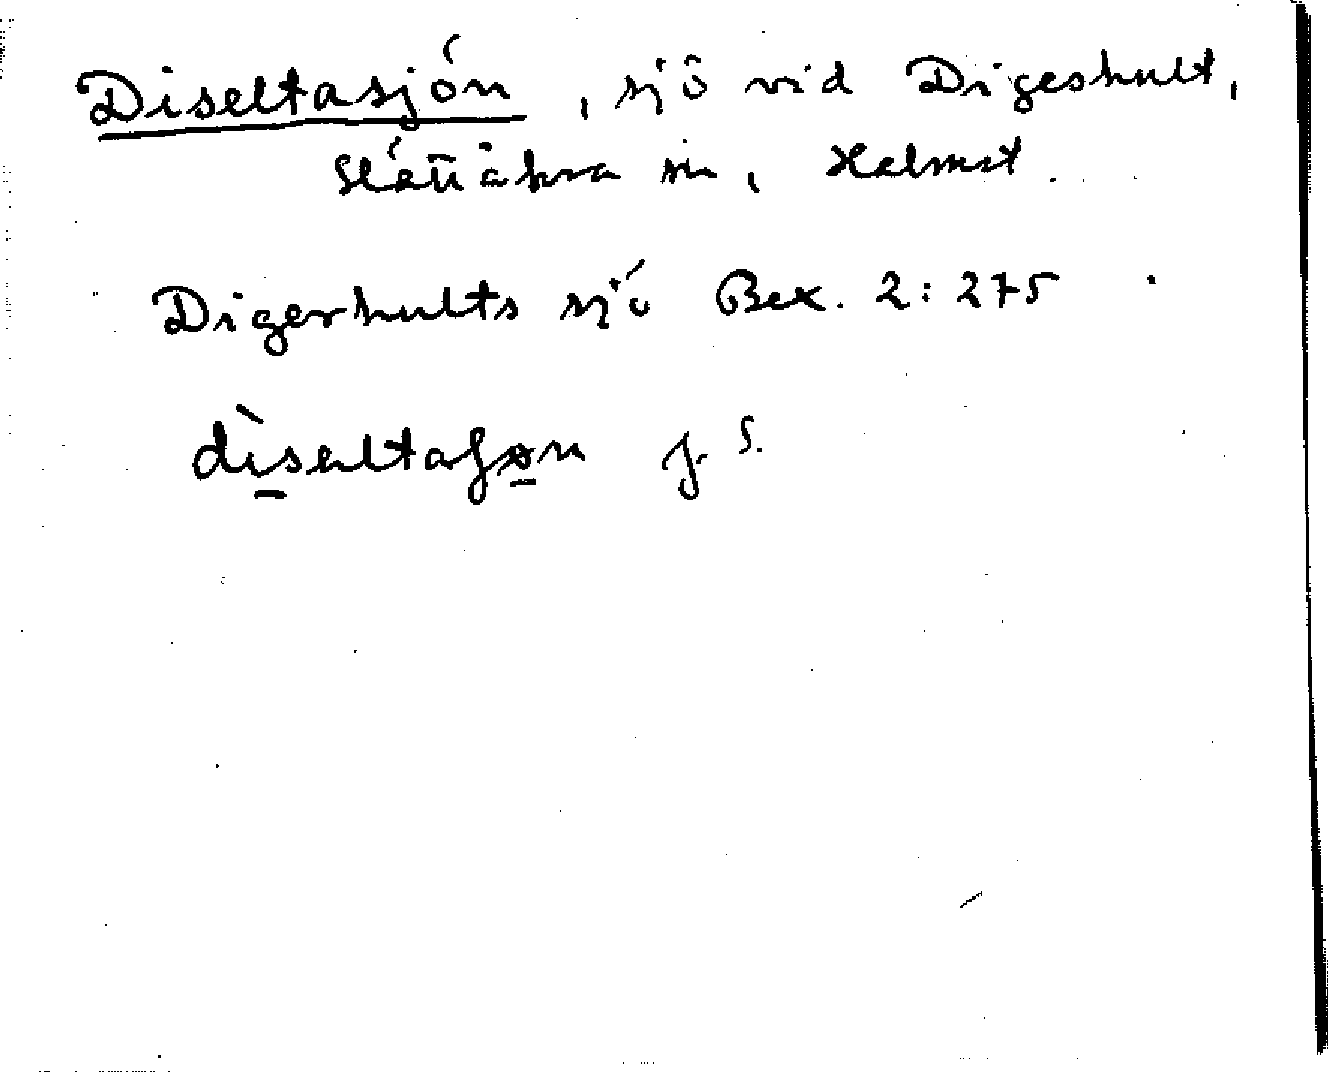 Diseltasjön, sjö vid Digeshult,
Slättåkra sn, Halmst.
Digerhults sjö Bex. 2:275
dìseltaʃøn f. S.